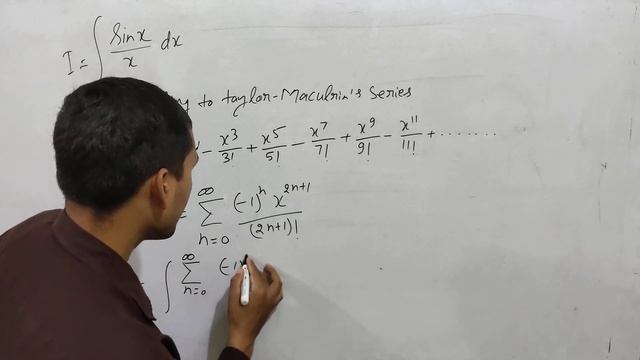 I = ∫ sinx/x dx
to taylor-Maculrin's Series
- x³/3! + x⁵/5! - x⁷/7! + x⁹/9! - x¹¹/11! + ........
= ∑ₙ₌₀^∞ (-1)ⁿ x²ⁿ⁺¹/(2n+1)!
∫ ∑ₙ₌₀^∞ (-1)